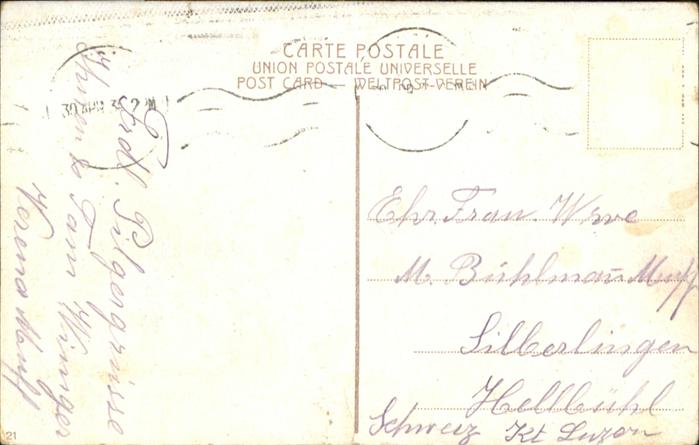 CARTE POSTALE
UNION POSTALE UNIVERSELLE
POST CARD — WELTPOST-VEREIN
Frdl. Pilgergrüsse
Ihnen & Fam Winiger
Verena Muff
Ehr. Frau. Wwe
M. Bühlmann Muff
Silberlingen
Hellbühl
Schweiz Kt Luzern
21